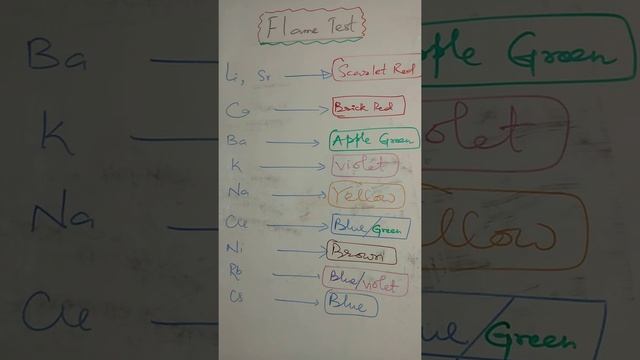 Flame Test
Li, Sr → Scarlet Red
Ca → Brick Red
Ba → Apple Green
K → violet
Na → Yellow
Cu → Blue/Green
Ni → Brown
Rb → Blue/violet
Cs → Blue
Ba
K
Na
Cu
ple Green
olet
llow
ue/Green